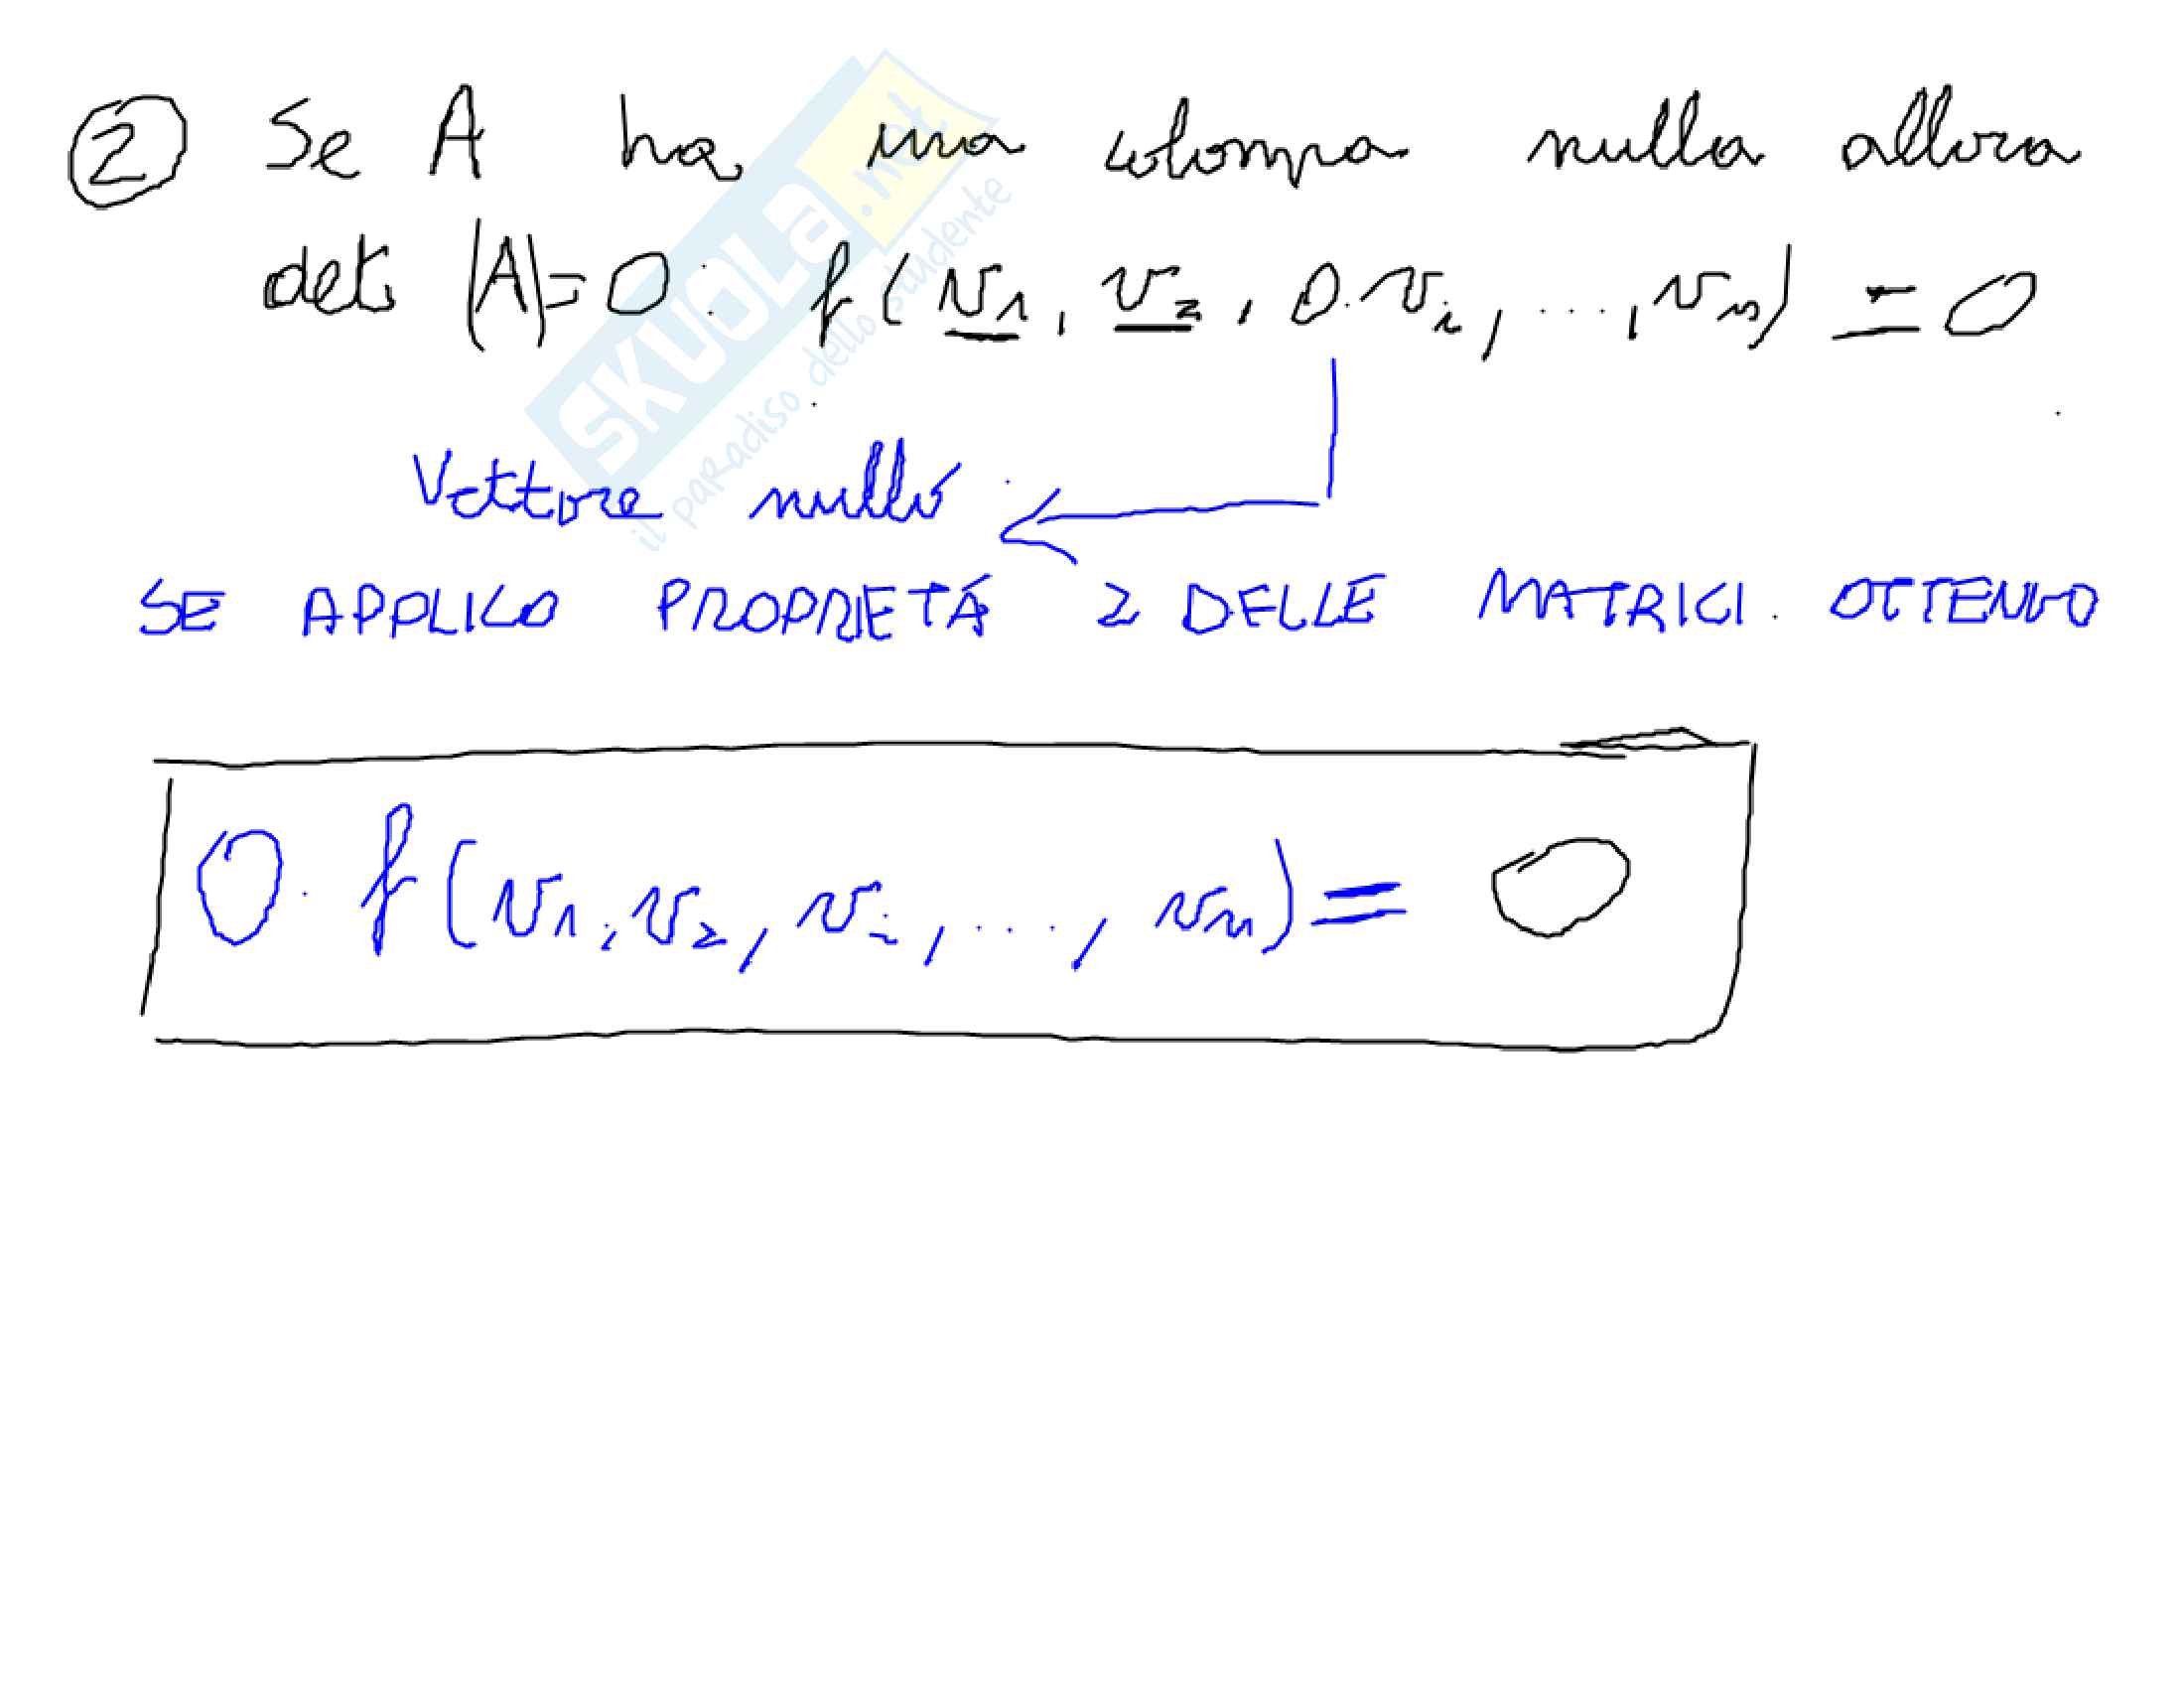 ② Se A ha una colonna nulla allora
det |A|=0 : f(v₁, v₂, 0·vᵢ, ..., vₙ) = 0
Vettore nullo
SE APPLICO PROPRIETÁ 2 DELLE MATRICI. OTTENGO
0·f(v₁, v₂, vᵢ, ..., vₙ) = 0
SKUOLA.net
il paradiso dello studente